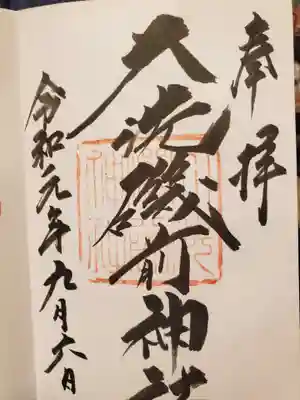 奉拝
大洗磯前神社
令和元年九月六日